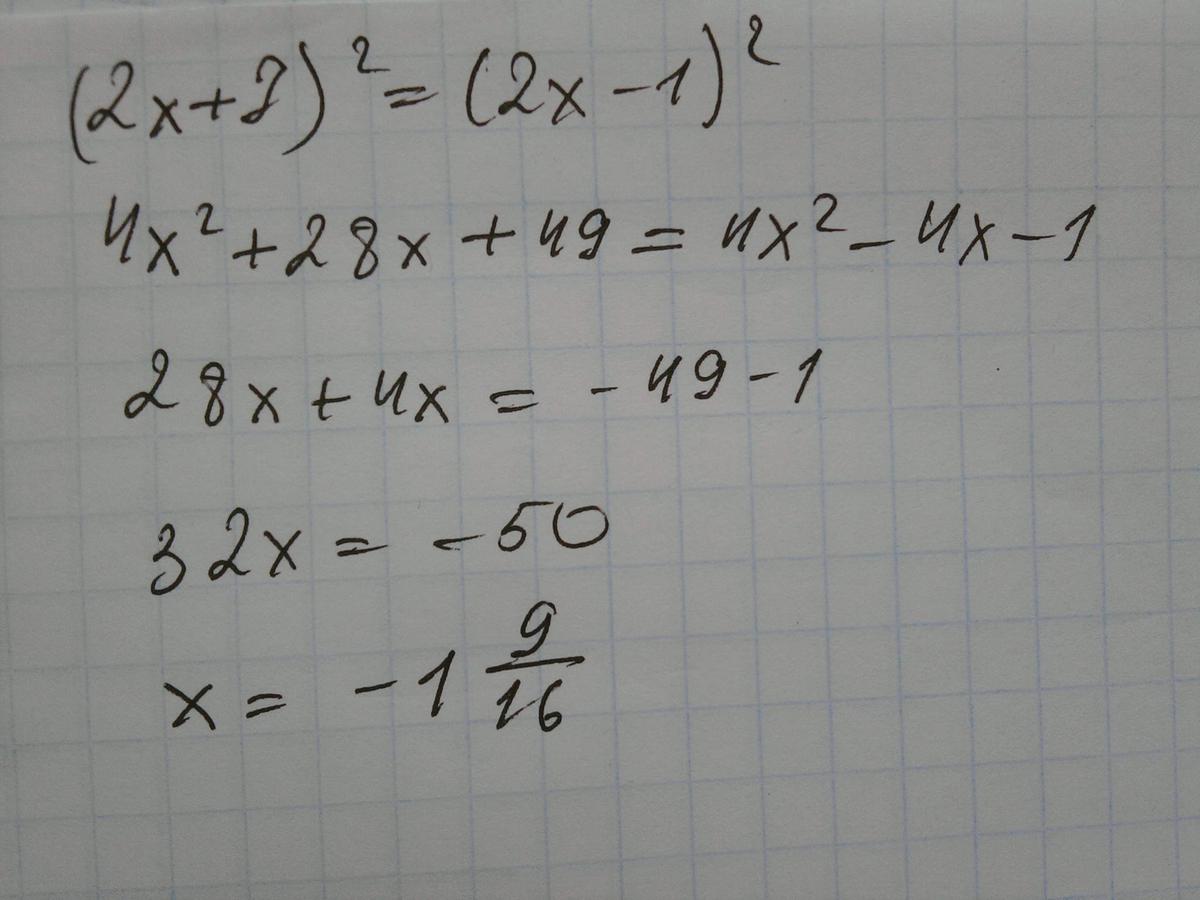 (2x+7)² = (2x-1)²
4x² + 28x + 49 = 4x² - 4x - 1
28x + 4x = - 49 - 1
32x = - 50
x = - 1 9/16